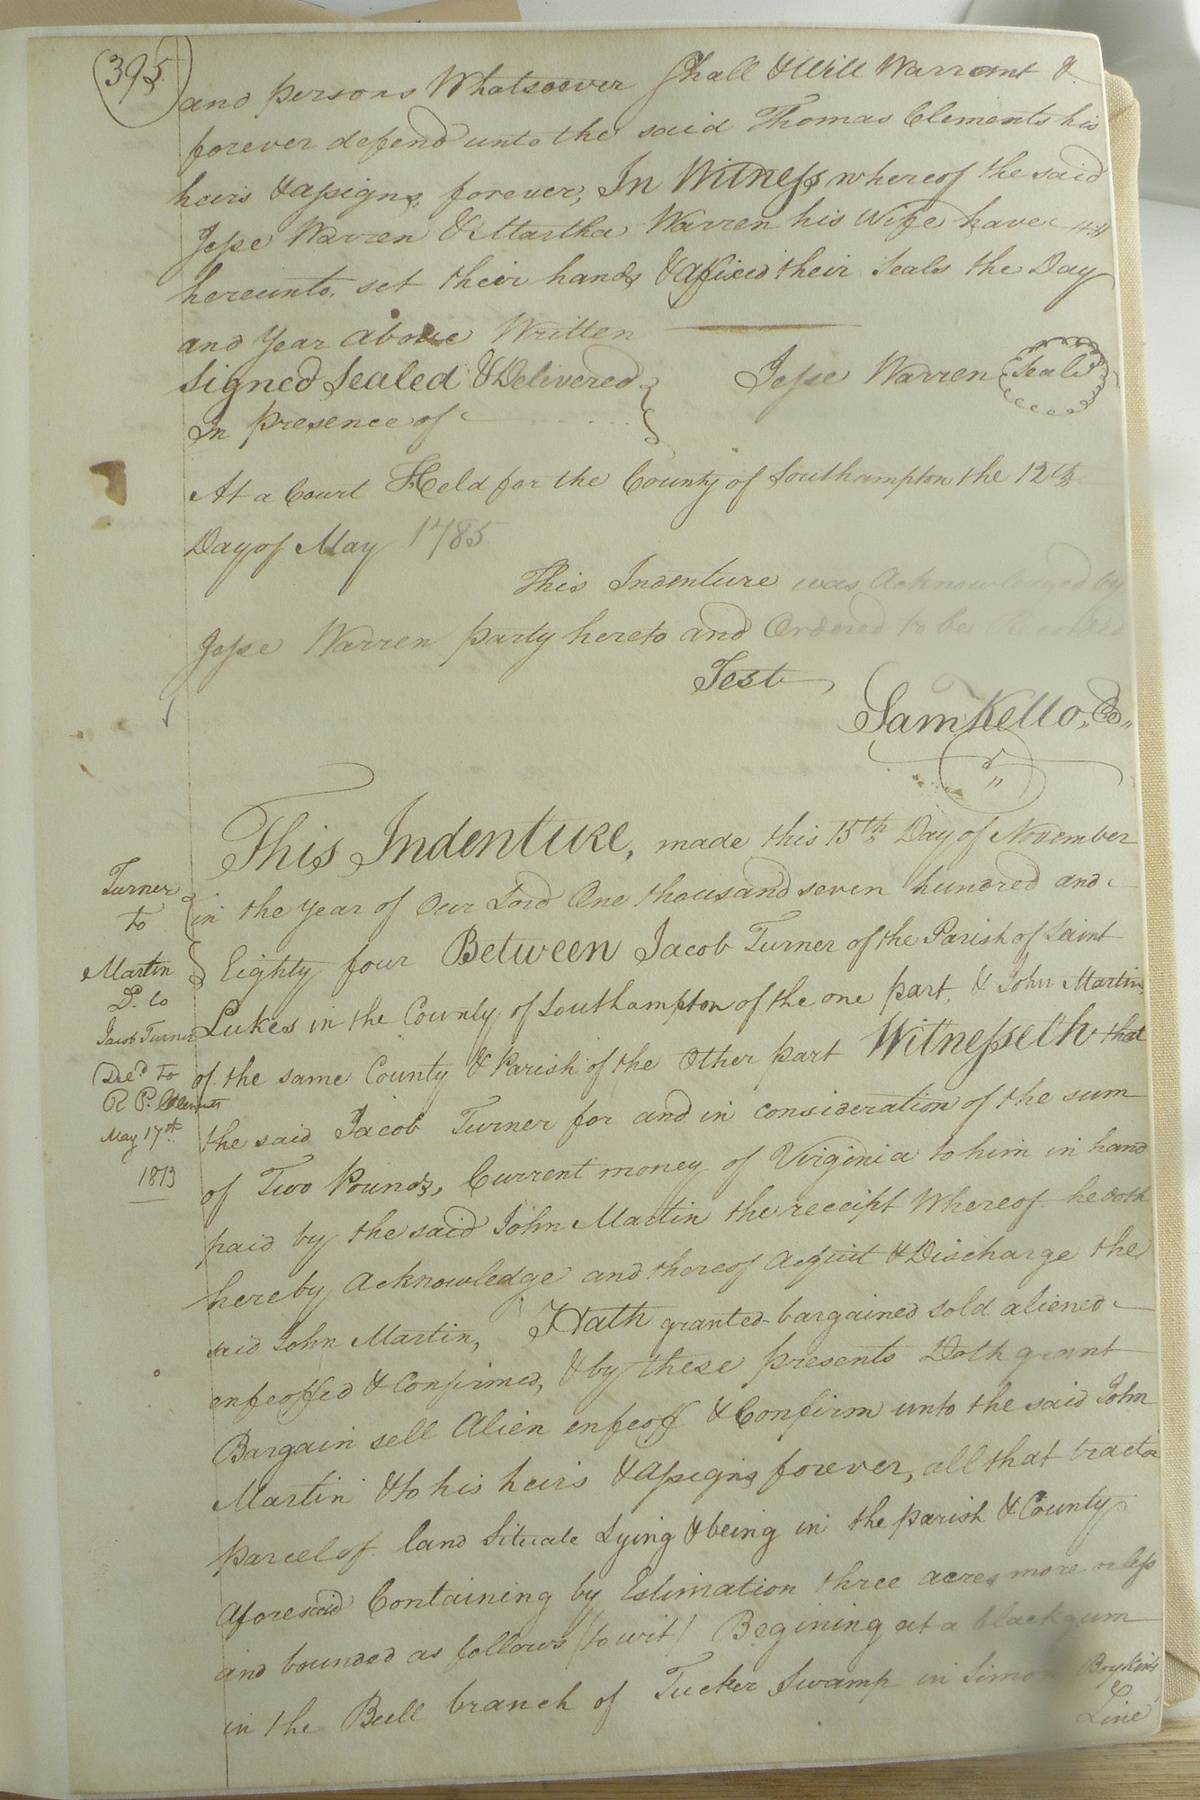 395
and persons Whatsoever Shall & Will Warrant &
forever defend unto the said Thomas Clements his
heirs & assigns, forever, In Witness whereof the said
Jesse Warren & Martha Warren his Wife have
hereunto, set their hands & afixed their Seals the Day
and Year above Written
Signed Sealed & Delivered
In presence of
Jesse Warren Seal
At a Court Held for the County of Southampton the 12th
Day of May 1785
This Indenture was Acknowledged by
Jesse Warren party hereto and Ordered to be Recorded
Test
Sam Kello, Co,,
This Indenture, made this 15th Day of November
in the year of Our Lord One thousand seven hundred and
Eighty four Between Jacob Turner of the Parish of Saint
Lukes in the County of Southampton of the one part, & John Martin
of the same County & Parish of the Other part Witnesseth that
the said Jacob Turner for and in consideration of the sum
of Two Pounds, Current money of Virginia to him in hand
paid by the said John Martin the receipt Whereof he doth
hereby Acknowledge and thereof Acquit & Discharge the
said John Martin, Hath granted bargained sold aliened
enfeoffed & Confirmed, & by these presents Doth grant
Bargain sell Alien enfeoff & Confirm unto the said John
Martin & to his heirs & Assigns forever, all that tract or
parcel of land Situate Lying & being in the parish & County
Aforesaid Containing by Estimation three acres more or less
and bounded as follows (to wit) Begining at a black gum
in the Bell branch of Tucker Swamp in Simon Boykin's
Line
Turner
to
Martin
D. to
Jacob Turner
Dec.d to
R P. Clements
May 17th
1813